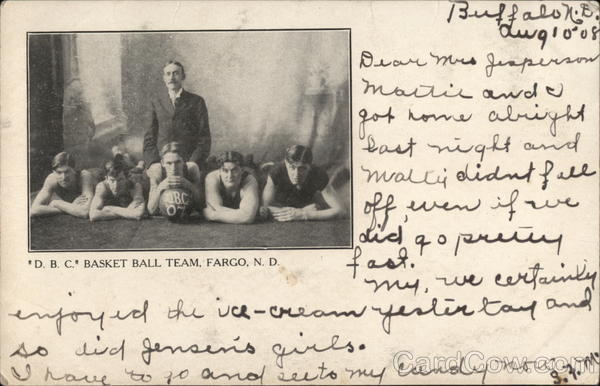 Buffalo N.D.
Aug 10 '08
Dear Mrs Jesperson
Mattie and I
got home alright
last night and
Matty didnt fall
off, even if we
did go pretty
fast.
My, we certainly
enjoyed the ice-cream yesterday and
so did Jensen's girls.
I have to go and see to my candy now
DBC
07
"D. B. C." BASKET BALL TEAM, FARGO, N. D.
CardCow.com